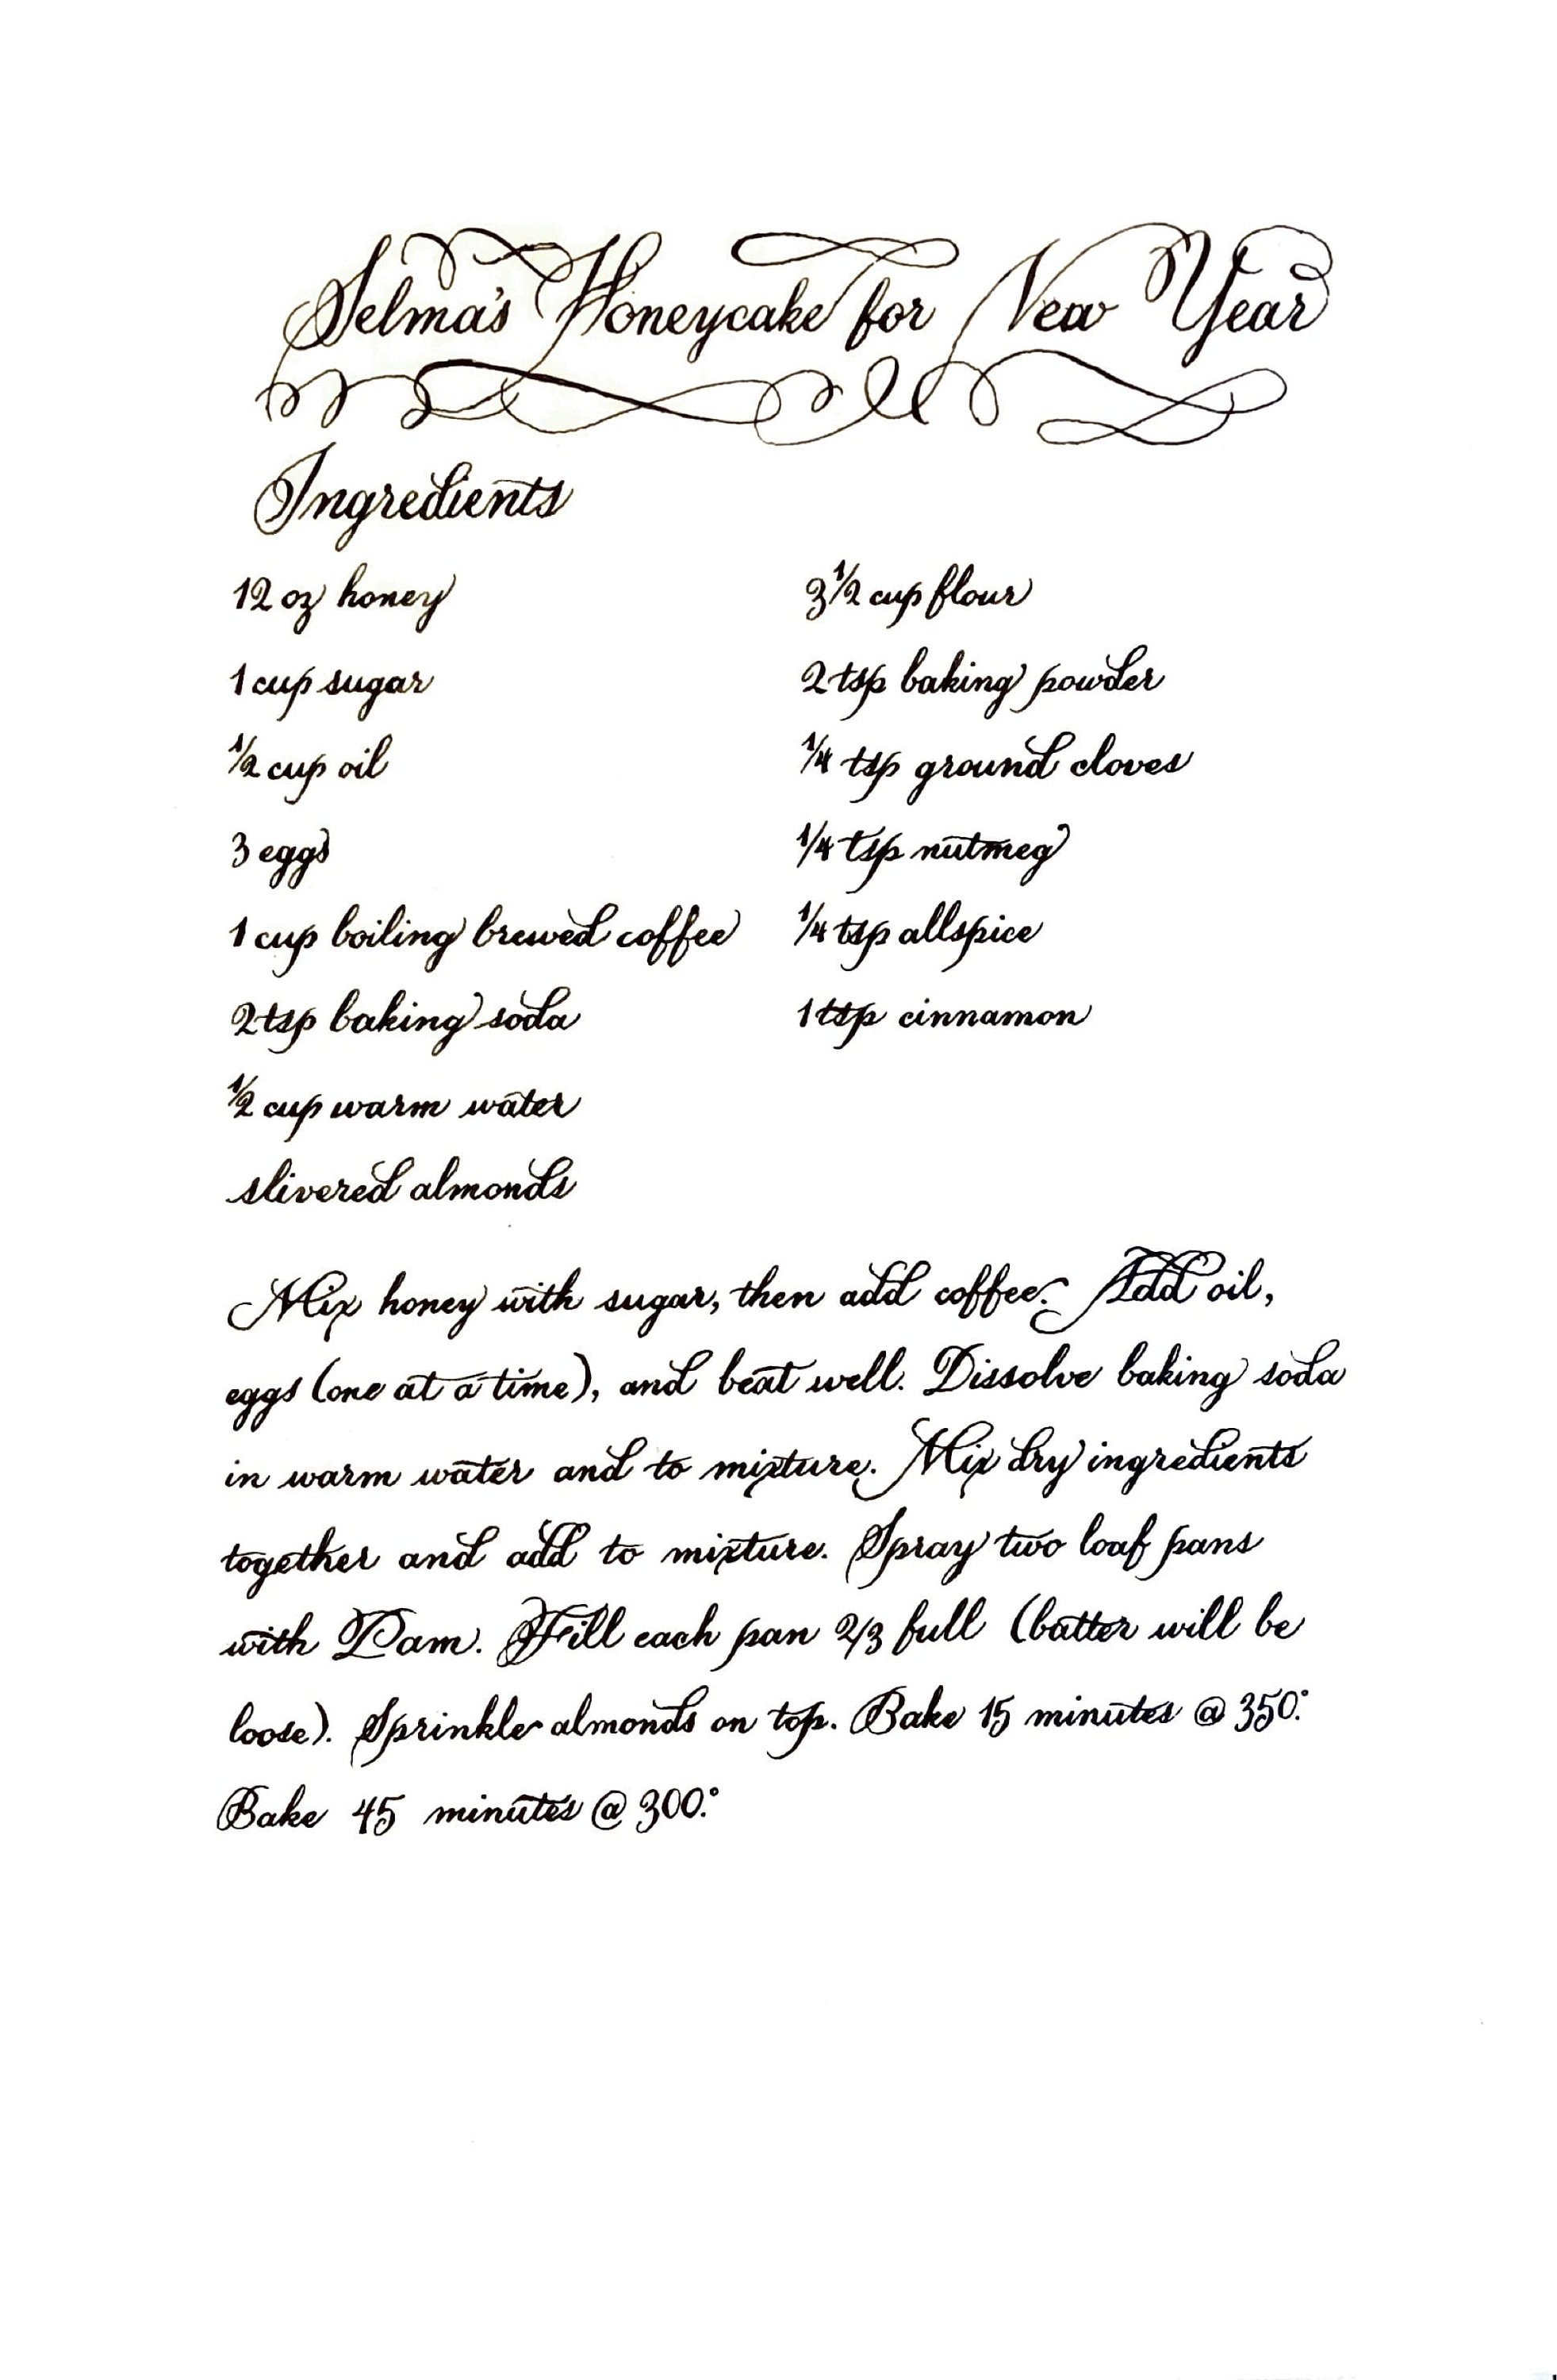 Selma's Honeycake for New Year
Ingredients
12 oz honey
1 cup sugar
1/2 cup oil
3 eggs
1 cup boiling brewed coffee
2 tsp baking soda
1/2 cup warm water
slivered almonds
3 1/2 cup flour
2 tsp baking powder
1/4 tsp ground cloves
1/4 tsp nutmeg
1/4 tsp allspice
1 tsp cinnamon
Mix honey with sugar, then add coffee. Add oil,
eggs (one at a time), and beat well. Dissolve baking soda
in warm water and to mixture. Mix dry ingredients
together and add to mixture. Spray two loaf pans
with Pam. Fill each pan 2/3 full (batter will be
loose). Sprinkle almonds on top. Bake 15 minutes @ 350°.
Bake 45 minutes @ 300°.